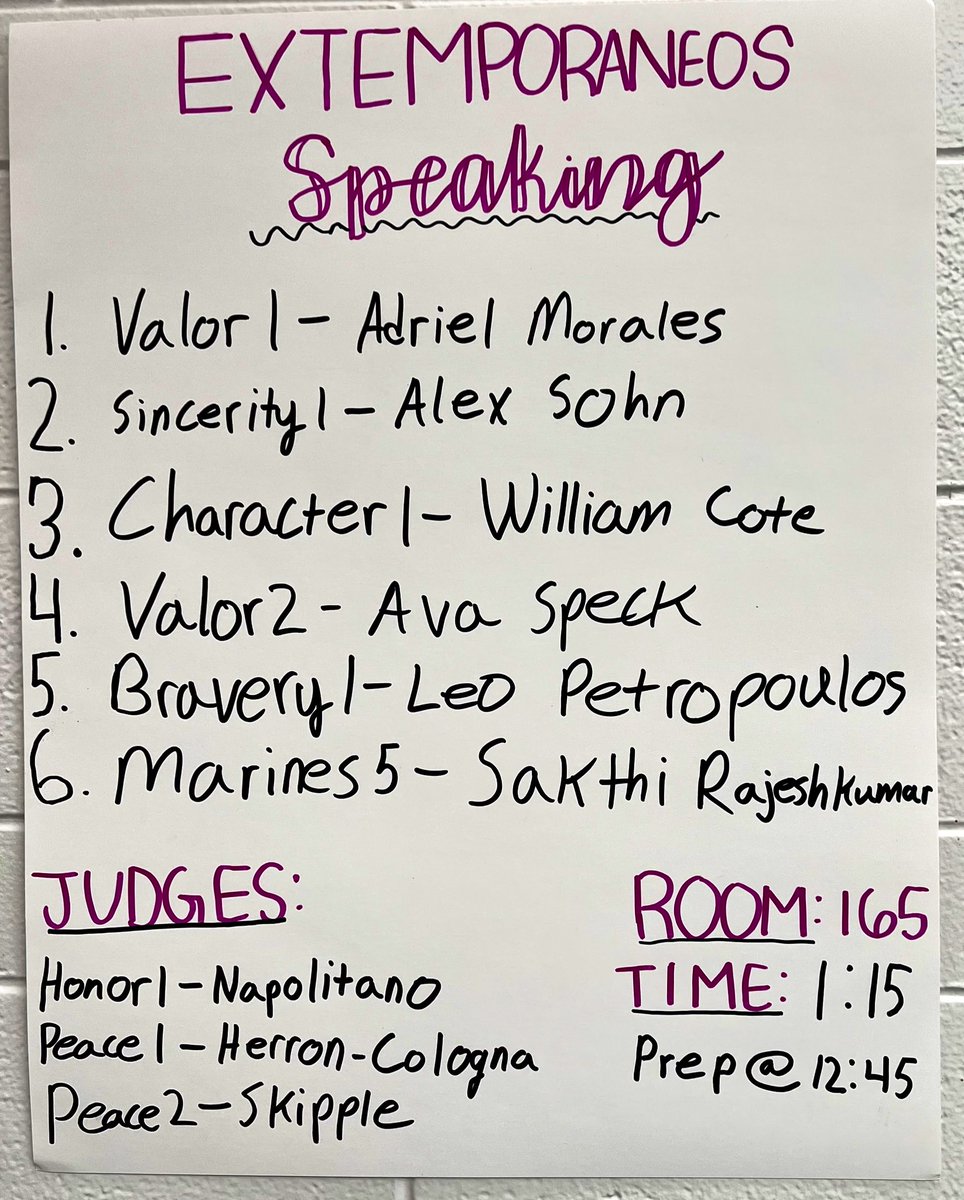 EXTEMPORANEOS
Speaking
1. Valor 1 - Adriel Morales
2. Sincerity 1 - Alex Sohn
3. Character 1 - William Cote
4. Valor 2 - Ava Speck
5. Bravery 1 - Leo Petropoulos
6. Marines 5 - Sakthi Rajeshkumar
JUDGES:
Honor 1 - Napolitano
Peace 1 - Herron-Cologna
Peace 2 - Skipple
ROOM: 165
TIME: 1:15
Prep @ 12:45